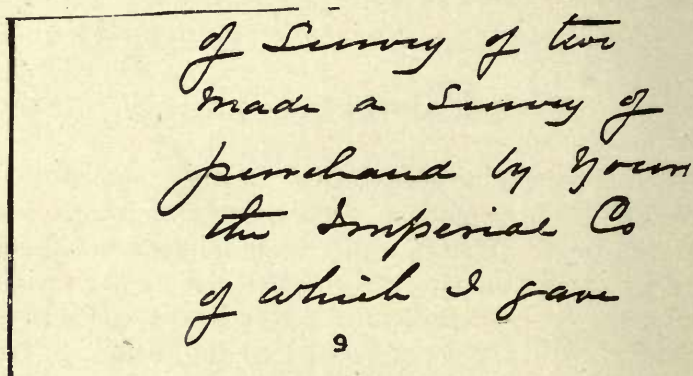 of Survey of two
made a Survey of
purchased by Your
the Imperial Co
of which I gave
9